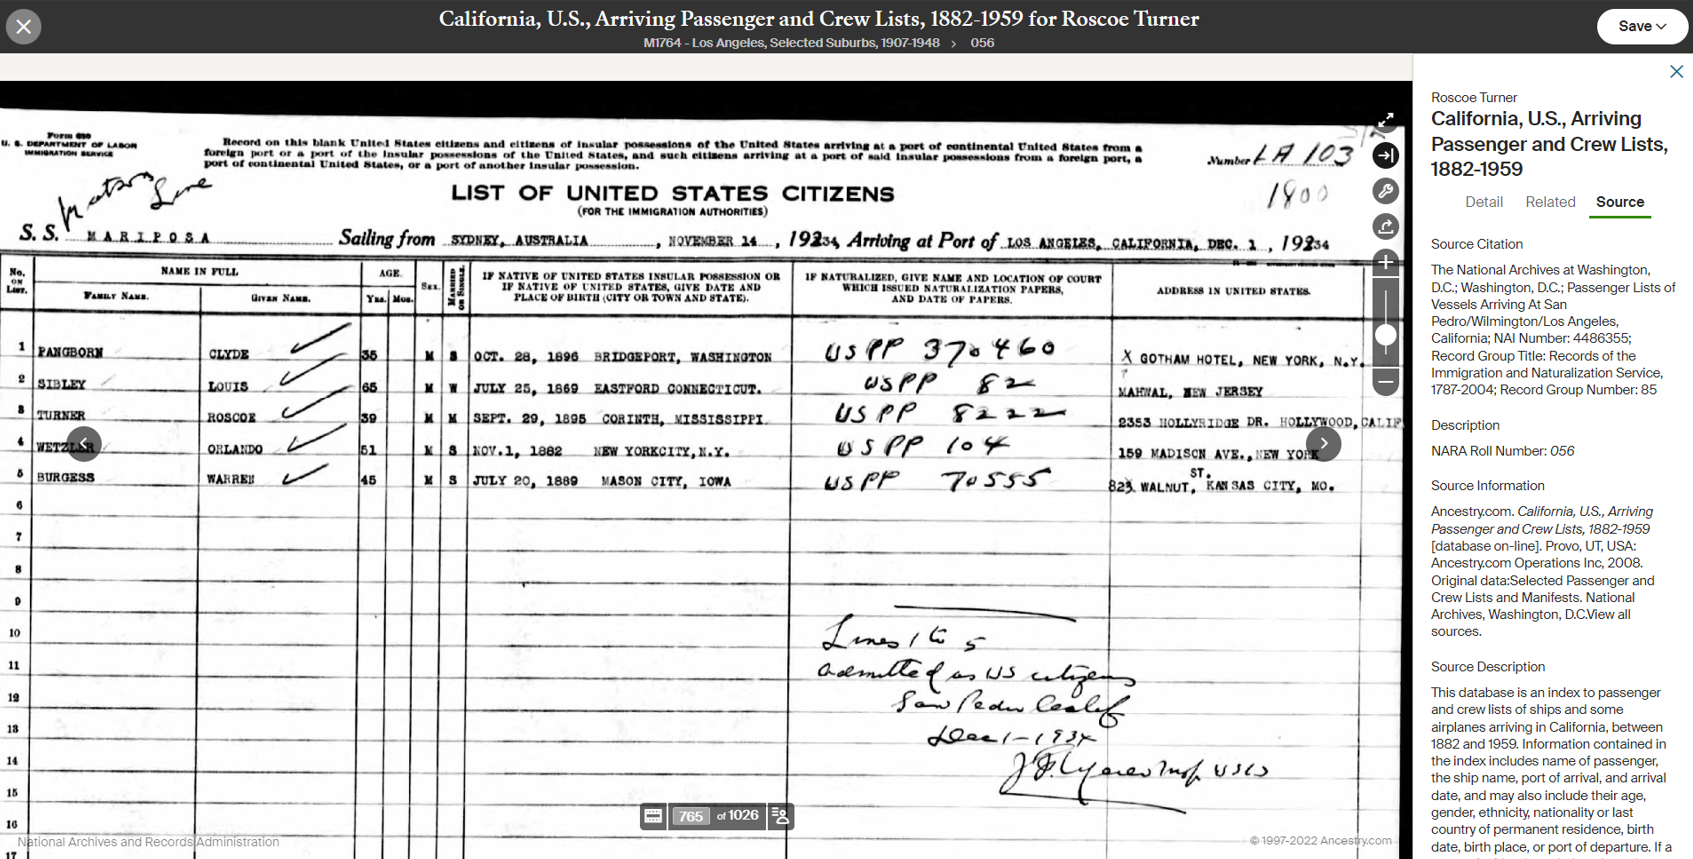 California, U.S., Arriving Passenger and Crew Lists, 1882-1959 for Roscoe Turner
M1764 - Los Angeles, Selected Suburbs, 1907-1948 › 056
Save
Form 630
U. S. DEPARTMENT OF LABOR
IMMIGRATION SERVICE
Record on this blank United States citizens and citizens of insular possessions of the United States arriving at a port of continental United States from a
foreign port or a port of the insular possessions of the United States, and such citizens arriving at a port of said insular possessions from a foreign port, a
port of continental United States, or a port of another insular possession.
Number LA 103
1800
Matson Line
LIST OF UNITED STATES CITIZENS
(FOR THE IMMIGRATION AUTHORITIES)
S. S. MARIPOSA Sailing from SYDNEY, AUSTRALIA, NOVEMBER 14, 19234, Arriving at Port of LOS ANGELES, CALIFORNIA, DEC. 1, 19234
No. ON LIST.
NAME IN FULL
FAMILY NAME.
GIVEN NAME.
AGE.
YRS. MOS.
SEX.
MARRIED OR SINGLE.
IF NATIVE OF UNITED STATES INSULAR POSSESSION OR
IF NATIVE OF UNITED STATES, GIVE DATE AND
PLACE OF BIRTH (CITY OR TOWN AND STATE).
IF NATURALIZED, GIVE NAME AND LOCATION OF COURT
WHICH ISSUED NATURALIZATION PAPERS,
AND DATE OF PAPERS.
ADDRESS IN UNITED STATES.
1 PANGBORN CLYDE 38 M S OCT. 28, 1896 BRIDGEPORT, WASHINGTON USPP 370460 X GOTHAM HOTEL, NEW YORK, N.Y.
2 SIBLEY LOUIS 65 M W JULY 25, 1869 EASTFORD CONNECTICUT. USPP 82 MAHWAL, NEW JERSEY
3 TURNER ROSCOE 39 M M SEPT. 29, 1895 CORINTH, MISSISSIPPI. USPP 8222 2353 HOLLYRIDGE DR. HOLLYWOOD, CALIF
4 WETZLER ORLANDO 51 M S NOV.1, 1882 NEW YORKCITY,N.Y. USPP 104 159 MADISON AVE.,NEW YORK
5 BURGESS WARREN 45 M S JULY 20, 1889 MASON CITY, IOWA USPP 70555 823 WALNUT, ST. KANSAS CITY, MO.
6
7
8
9
10
11
12
13
14
15
16
17
Lines 1 to 5
admitted as US citizens
San Pedro Calif
Dec 1-1934
765 of 1026
National Archives and Records Administration
© 1997-2022 Ancestry.com
Roscoe Turner
California, U.S., Arriving
Passenger and Crew Lists,
1882-1959
Detail Related Source
Source Citation
The National Archives at Washington,
D.C.; Washington, D.C.; Passenger Lists of
Vessels Arriving At San
Pedro/Wilmington/Los Angeles,
California; NAI Number: 4486355;
Record Group Title: Records of the
Immigration and Naturalization Service,
1787-2004; Record Group Number: 85
Description
NARA Roll Number: 056
Source Information
Ancestry.com. California, U.S., Arriving
Passenger and Crew Lists, 1882-1959
[database on-line]. Provo, UT, USA:
Ancestry.com Operations Inc, 2008.
Original data:Selected Passenger and
Crew Lists and Manifests. National
Archives, Washington, D.C.View all
sources.
Source Description
This database is an index to passenger
and crew lists of ships and some
airplanes arriving in California, between
1882 and 1959. Information contained in
the index includes name of passenger,
the ship name, port of arrival, and arrival
date, and may also include their age,
gender, ethnicity, nationality or last
country of permanent residence, birth
date, birth place, or port of departure. If a